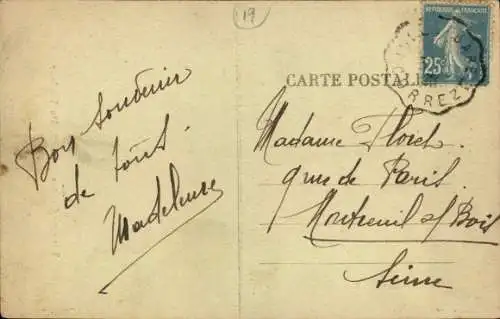 19
RÉPUBLIQUE FRANÇAISE
25c
CARTE POSTALE
RREZ
Bon souvenir
de tous
Madeleine
Madame Floret
9 rue de Paris
Montreuil s/ Bois
Seine